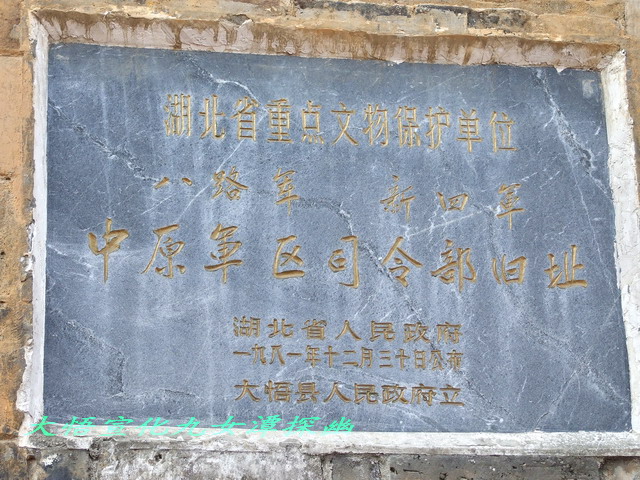 湖北省重点文物保护单位
八路军 新四军
中原军区司令部旧址
湖北省人民政府
一九八一年十二月三十日公布
大悟县人民政府立
大悟宣化九女潭探幽